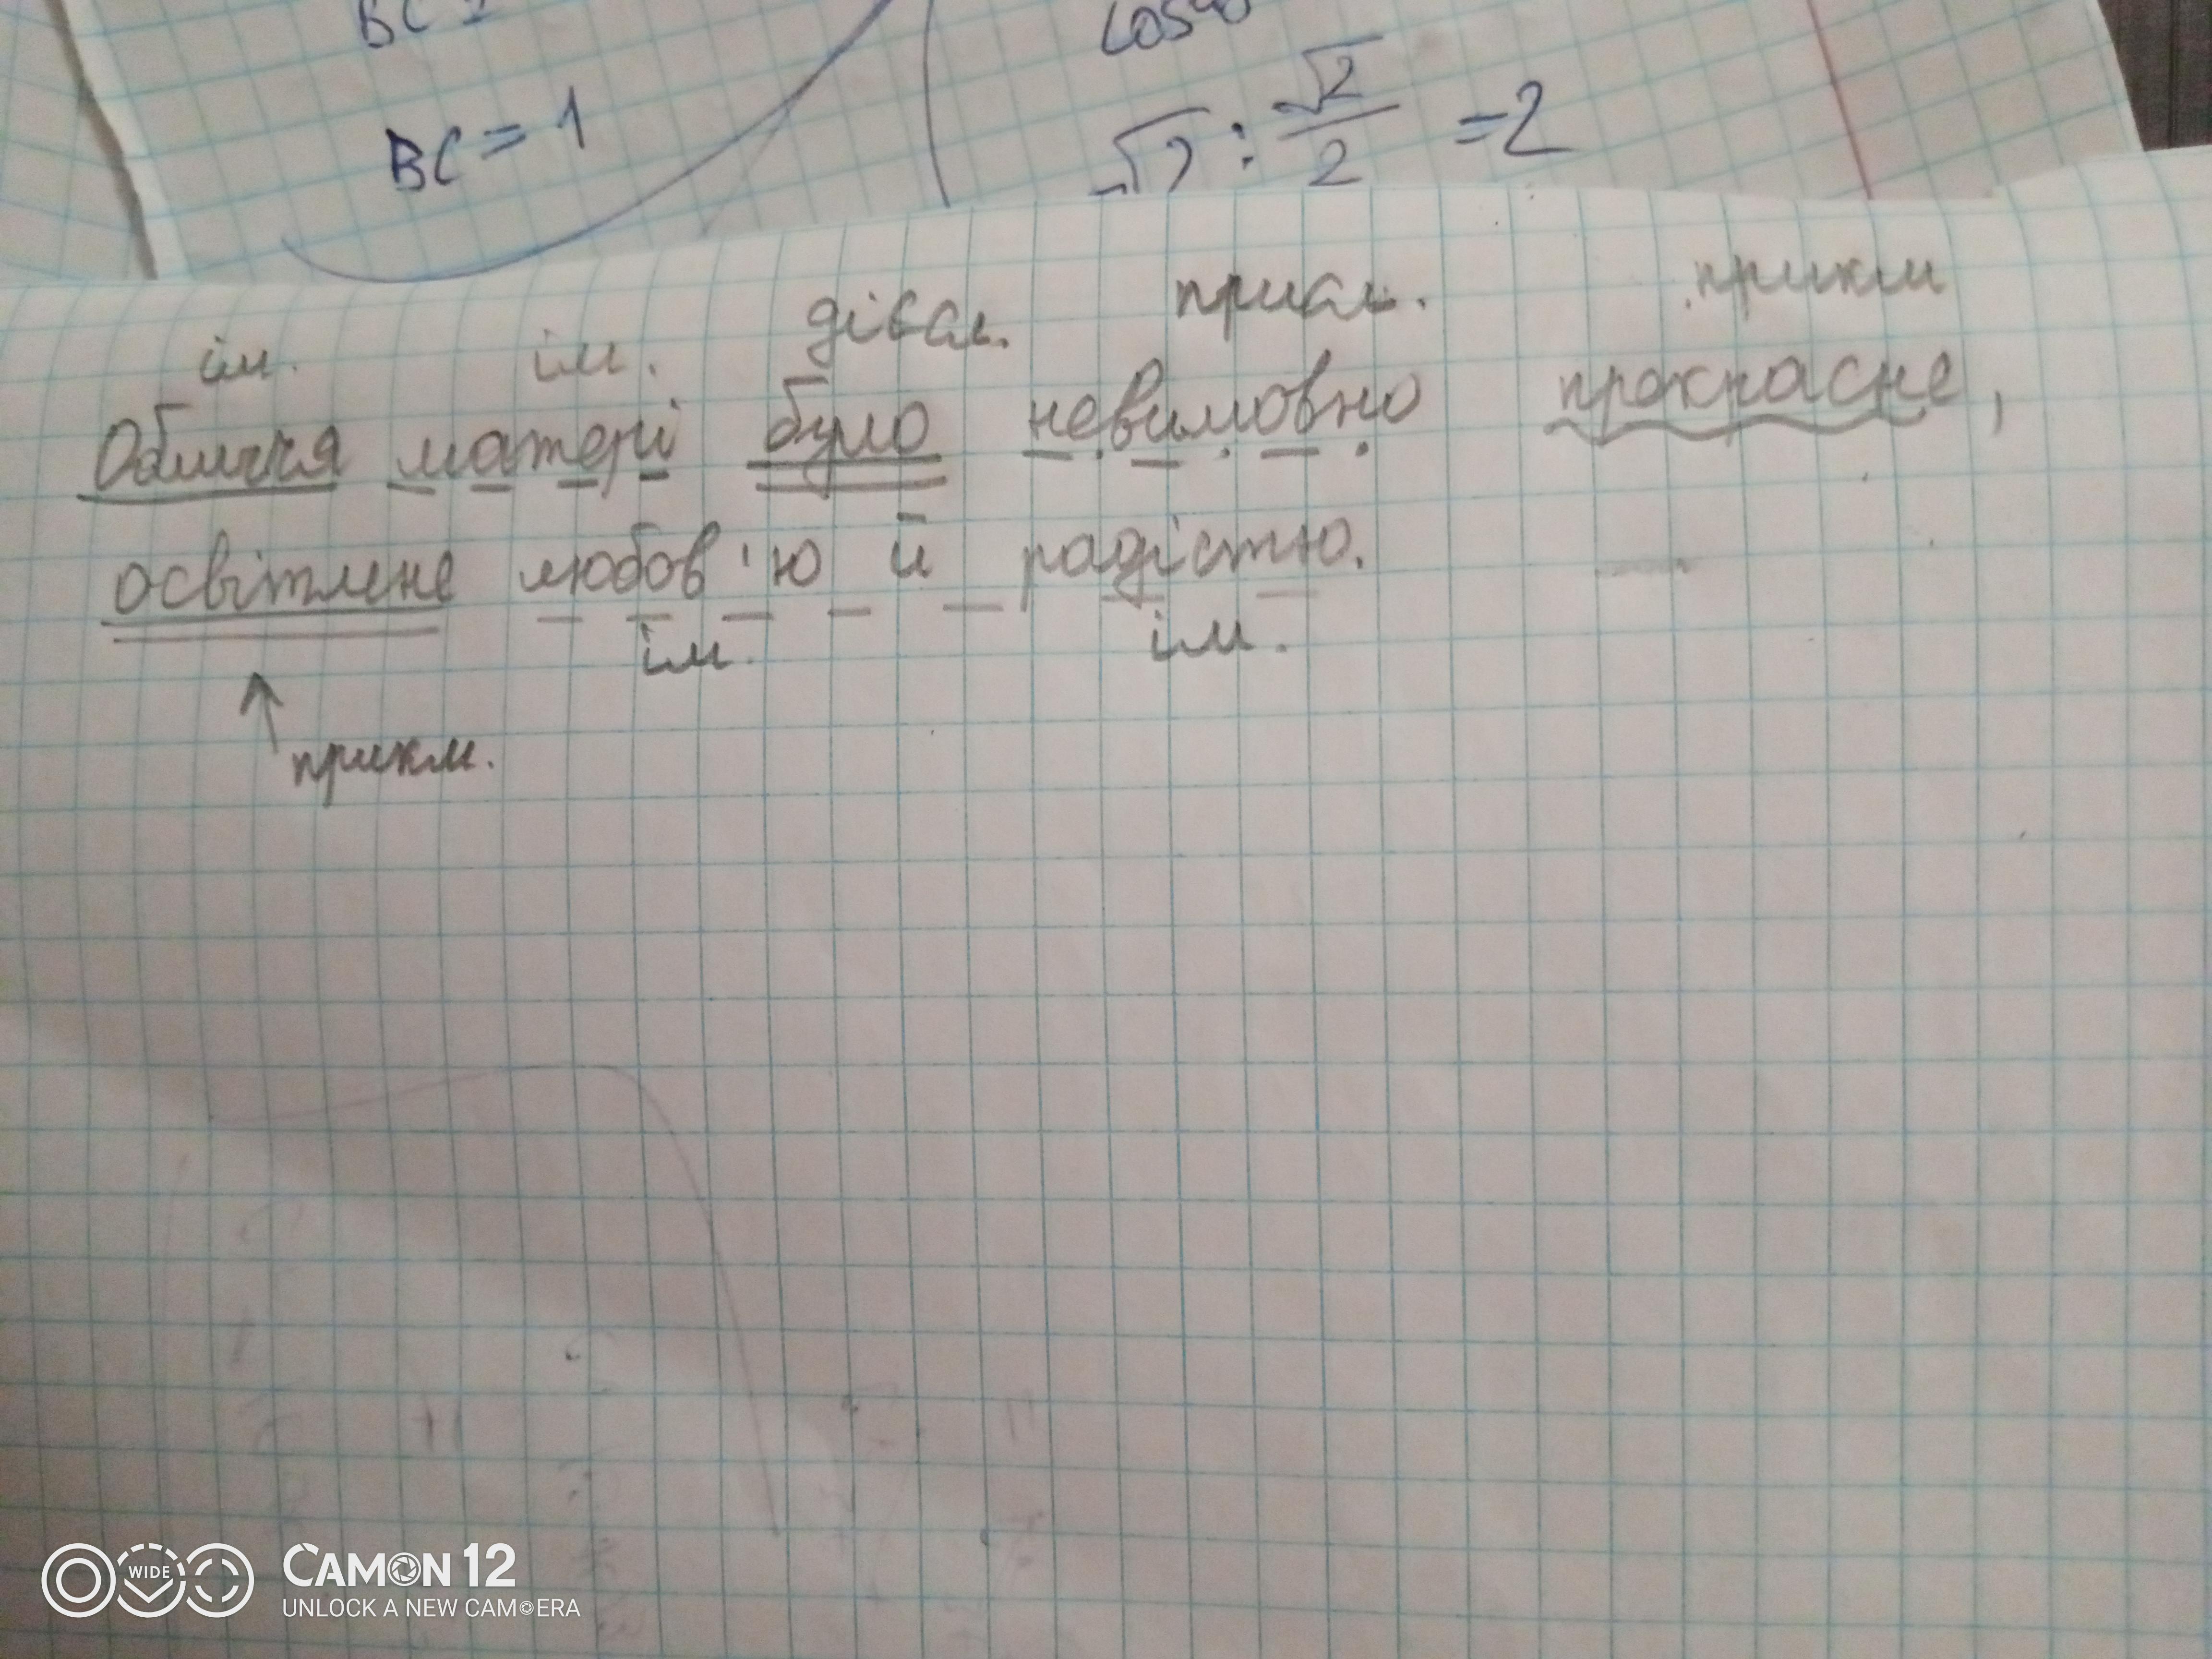 BC = 1
√2 : √2/2 = 2
ім. ім. дієсл. присл. прикм
Обличчя матері було невимовно прекрасне,
освітлене любов'ю й радістю.
ім. ім.
прикм.
WIDE CAMON 12
UNLOCK A NEW CAMERA